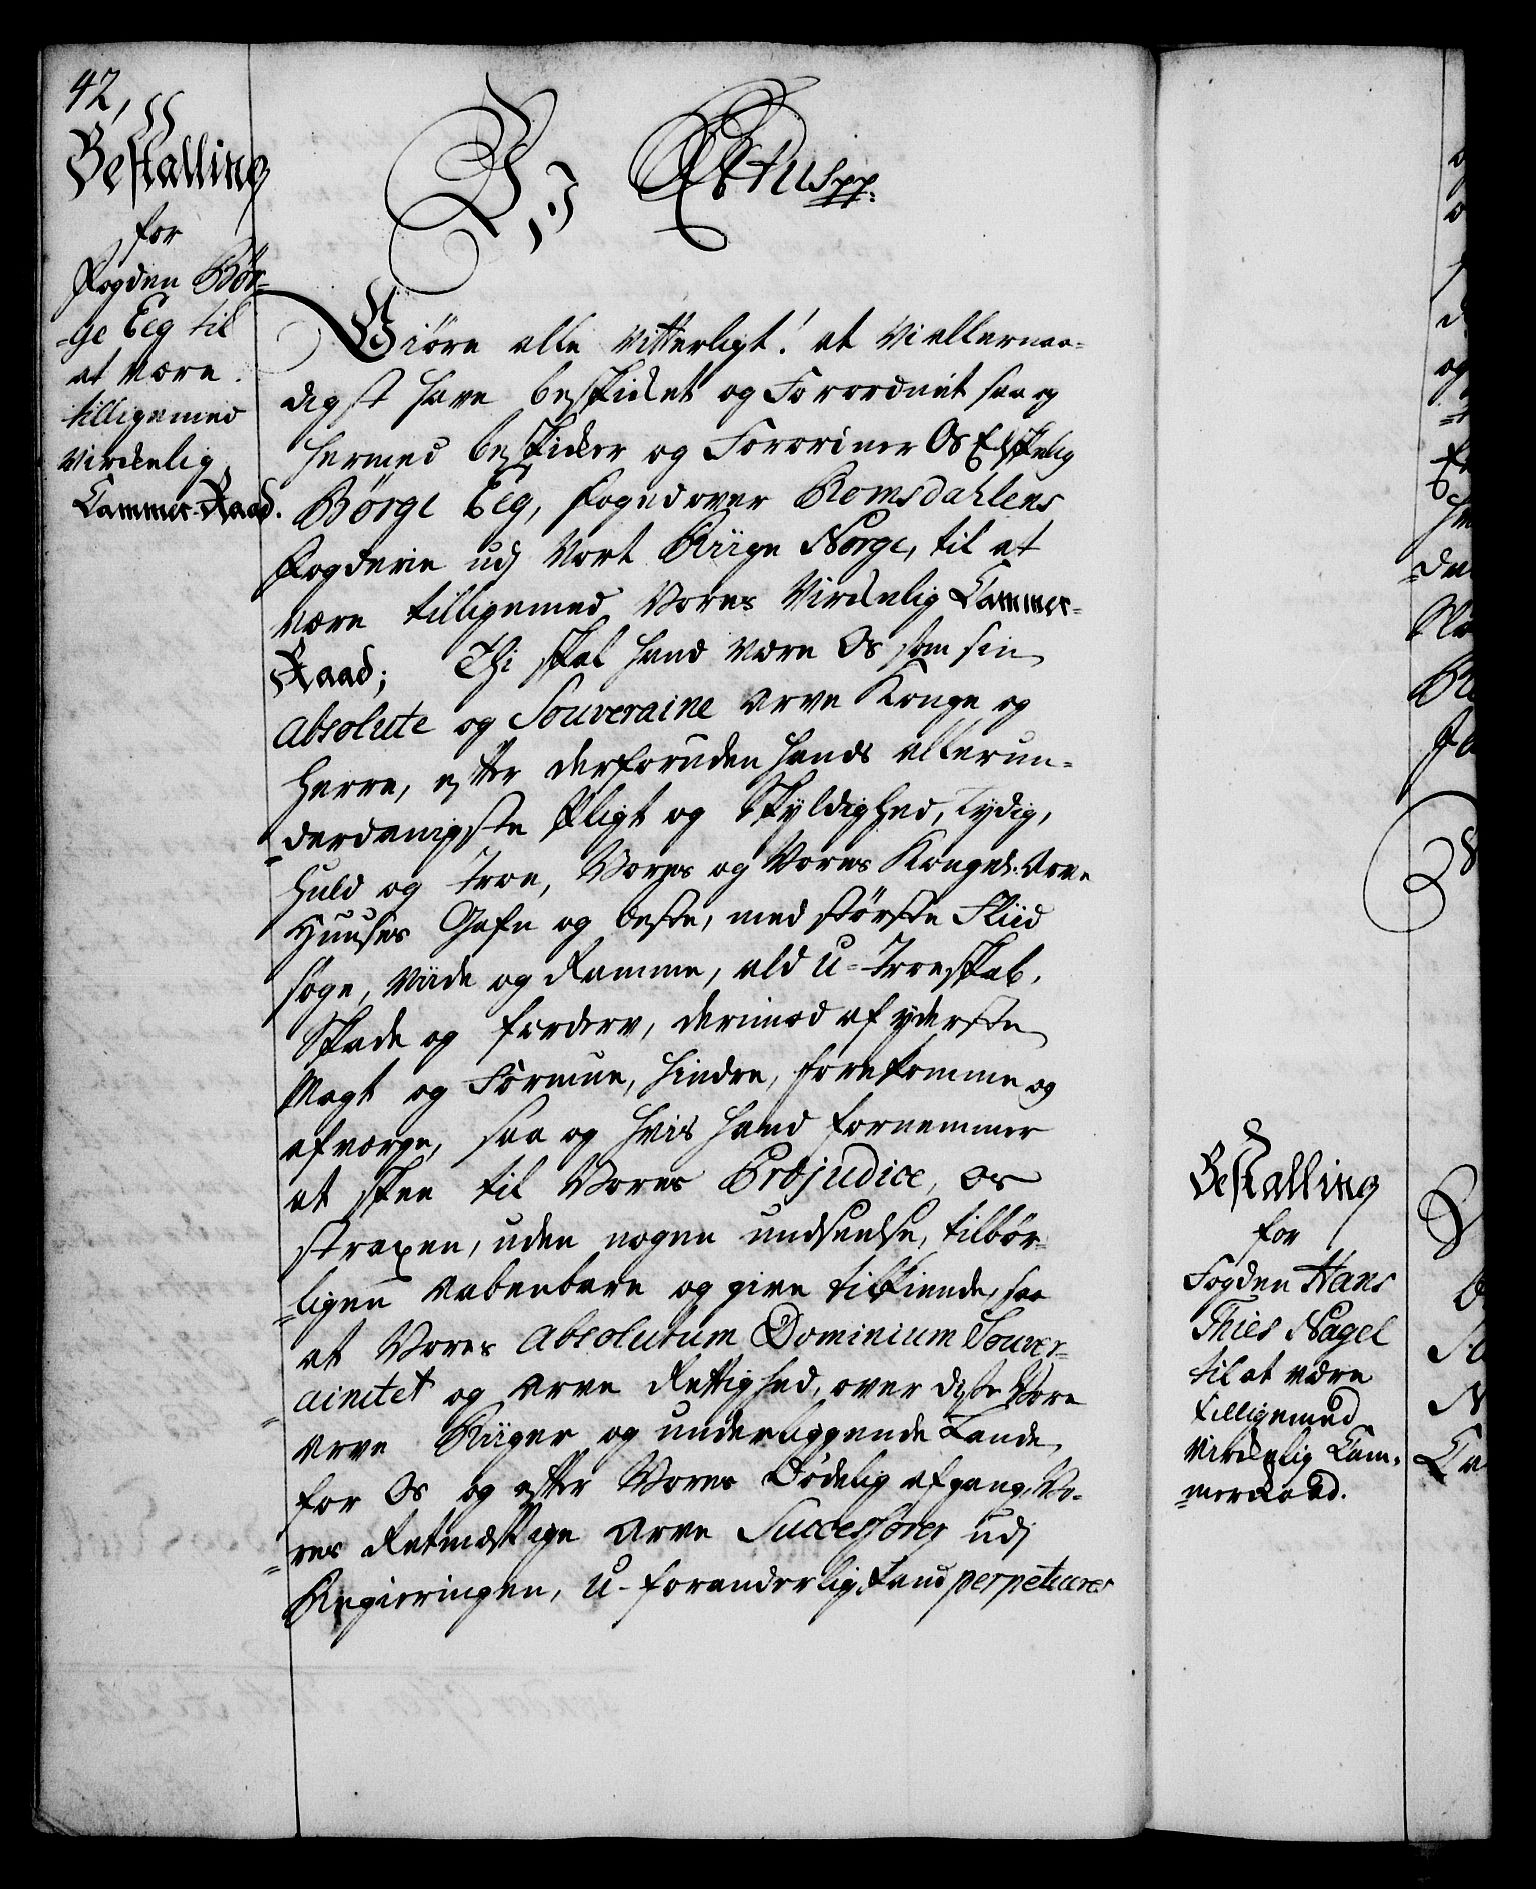 42,
Bestalling
for
Fogden Bør-
-ge Eeg til
at være
tilligemed
Virckelig
Cammer-Raad.
Giöre alle Vitterligt! at Vi allernaa-
digst have beskicket og Forordnet saa og
hermed beskicker og Forordner Os Elskelig
Börge Eeg, foged over Romsdahlens
Fogderie udj Vort Riige Norge, til at
være tilligemed Vores Virckelig Cammer-
Raad; Thi skal hand være Os som sin
absolute og Souveraine Arve Konge og
Herre, efter derforuden hands allerun-
-derdanigste Pligt og Skyldighed, Lydig,
Huld og Troe, Vores og Vores Kongel. Arve
Huuses Gafn og beste, med störste Fliid
söge, Viide og Ramme, ald U-Troeskab,
Skade og fordærv, derimod af yderste
Magt og Formue, hindre, forekomme og
afværge, saa og hvis hand fornemmer
at skee til Vores Præjudice, os
straxen, uden nogen undseelse, tilbör-
-ligen aabenbare og give tilkiende, saa
at Vores absolutum Dominium Souver-
-ainitet og Arve Rettighed, over disse Vore
Arve Riiger og underliggende Lande,
for Os og efter Vores Dödelig afgang, Vo-
-res Retmæssige Arve Successorer udj
Regieringen, U-foranderlig kand perpetueres
Bestalling
for
Fogden Hans
Thies Nagel
til at være
tilligemed
Virckelig Cam-
-merRaad.